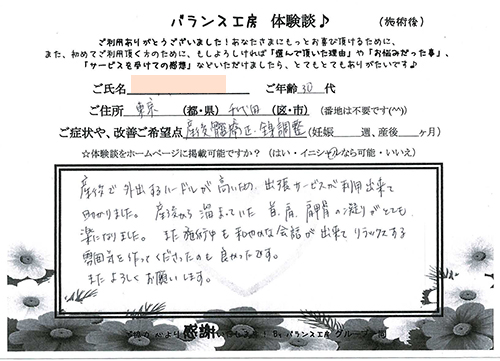 バランス工房 体験談♪ (施術後)
ご利用ありがとうございました！あなたさまにもっとお喜び頂けるために、
また、初めてご利用頂く方のために、もしよろしければ「選んで頂いた理由」や「お悩みだった事」、
「サービスを受けての感想」などいただけましたら、とてもとてもありがたいです♪
ご氏名 ご年齢 30 代
ご住所 東京 (都・県) 千代田 (区・市) (番地は不要です(^^))
ご症状や、改善ご希望点 産後骨盤矯正・全身調整 (妊娠 週、産後 ヶ月)
☆体験談をホームページに掲載可能ですか？ (はい・イニシャルなら可能・いいえ)
産後で外出するハードルが高いため、出張サービスが利用出来て
助かりました。産後から溜まっていた首、肩、肩甲骨の凝りがとても
楽になりました。また施術中も和やかな会話が出来てリラックスする
雰囲気を作ってくださったのも良かったです。
またよろしくお願いします。
心より感謝いたします！ By バランス工房 グループ一同